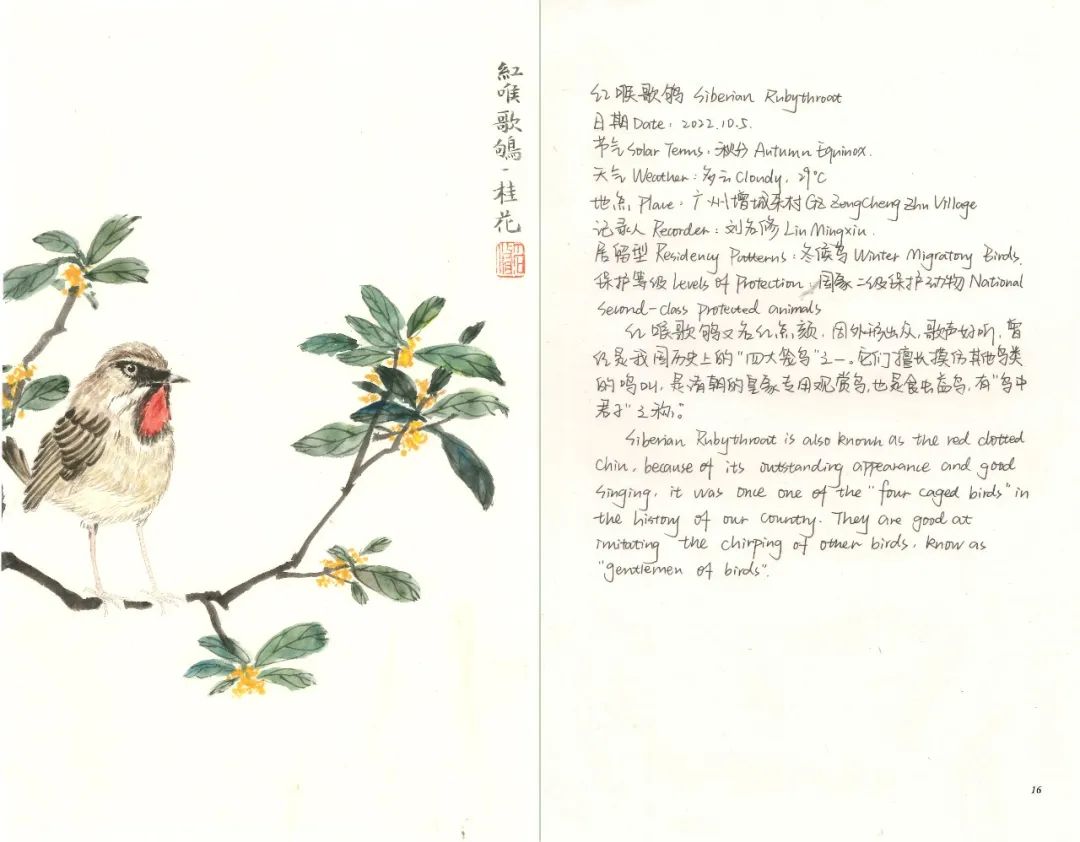 紅喉歌鴝-桂花
红喉歌鸲 Siberian Rubythroat
日期 Date: 2022.10.5.
节气 Solar Terms: 秋分 Autumn Equinox.
天气 Weather: 多云 Cloudy, 29℃
地点 Place: 广州增城朱村 GZ ZengCheng Zhu Village
记录人 Recorder: Liu Mingxiu.
居留型 Residency Patterns: 冬候鸟 Winter Migratory Birds.
保护等级 Levels of Protection: 国家二级保护动物 National
second-class protected animals
红喉歌鸲又名红点颏，因外形出众，歌声好听，曾
经是我国历史上的"四大笼鸟"之一。它们擅长摸仿其他鸟类
的鸣叫，是清朝的皇家专用观赏鸟，也是食虫益鸟，有"鸟中
君子"之称。
Siberian Rubythroat is also known as the red dotted
chin, because of its outstanding appearance and good
singing, it was once one of the "four caged birds" in
the history of our country. They are good at
imitating the chirping of other birds, know as
"gentlemen of birds".
16